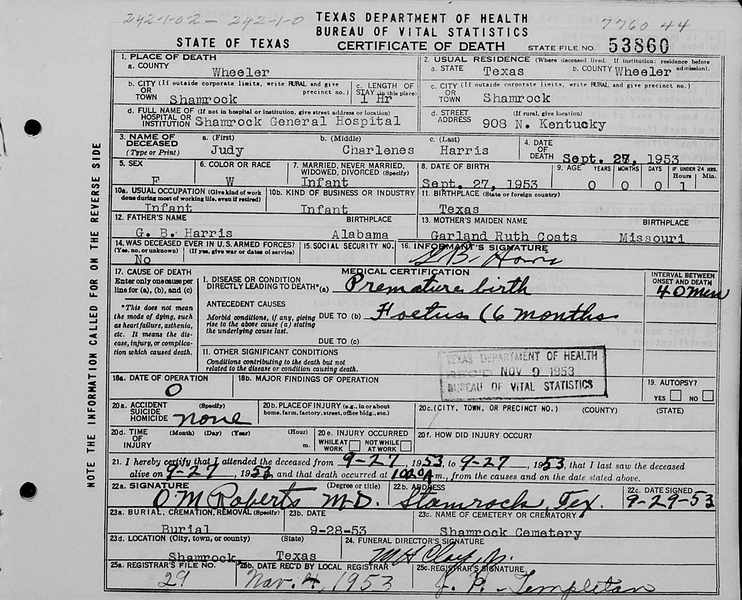 242-1-02 - 242-1-0 TEXAS DEPARTMENT OF HEALTH 7760 44
BUREAU OF VITAL STATISTICS
STATE OF TEXAS CERTIFICATE OF DEATH STATE FILE NO. 53860
1. PLACE OF DEATH 2. USUAL RESIDENCE (Where deceased lived. If institution: residence before admission).
a. COUNTY Wheeler a. STATE Texas b. COUNTY Wheeler
b. CITY (If outside corporate limits, write RURAL and give precinct no.) c. LENGTH OF STAY (in this place) c. CITY (If outside corporate limits, write RURAL and give precinct no.)
OR TOWN Shamrock 1 Hr OR TOWN Shamrock
d. FULL NAME OF (If not in hospital or institution, give street address or location) d. STREET (If rural, give location)
HOSPITAL OR INSTITUTION Shamrock General Hospital ADDRESS 908 N. Kentucky
3. NAME OF DECEASED a. (First) b. (Middle) c. (Last) 4. DATE OF DEATH
(Type or Print) Judy Charlenes Harris Sept. 27, 1953
5. SEX 6. COLOR OR RACE 7. MARRIED, NEVER MARRIED, WIDOWED, DIVORCED (Specify) 8. DATE OF BIRTH 9. AGE YEARS MONTHS DAYS IF UNDER 24 HRS. Hours Min.
F W Infant Sept. 27, 1953 0 0 0 1
10a. USUAL OCCUPATION (Give kind of work done during most of working life, even if retired) 10b. KIND OF BUSINESS OR INDUSTRY 11. BIRTHPLACE (State or foreign country)
Infant Infant Texas
12. FATHER'S NAME BIRTHPLACE 13. MOTHER'S MAIDEN NAME BIRTHPLACE
G. B. Harris Alabama Garland Ruth Coats Missouri
14. WAS DECEASED EVER IN U.S. ARMED FORCES? 15. SOCIAL SECURITY NO. 16. INFORMANT'S SIGNATURE
(Yes, no, or unknown) (If yes, give war or dates of service)
No G B. Harris
17. CAUSE OF DEATH MEDICAL CERTIFICATION INTERVAL BETWEEN ONSET AND DEATH
Enter only one cause per line for (a), (b), and (c)
I. DISEASE OR CONDITION DIRECTLY LEADING TO DEATH* (a) Premature birth 40 Min
*This does not mean the mode of dying, such as heart failure, asthenia, etc. It means the disease, injury, or complication which caused death.
ANTECEDENT CAUSES
Morbid conditions, if any, giving rise to the above cause (a) stating the underlying cause last.
DUE TO (b) Foetus (6 months
DUE TO (c)
II. OTHER SIGNIFICANT CONDITIONS
Conditions contributing to the death but not related to the disease or condition causing death.
TEXAS DEPARTMENT OF HEALTH
NOV 9 1953
BUREAU OF VITAL STATISTICS
18a. DATE OF OPERATION 18b. MAJOR FINDINGS OF OPERATION 19. AUTOPSY?
O YES NO
20a. ACCIDENT SUICIDE HOMICIDE (Specify) 20b. PLACE OF INJURY (e.g., in or about home, farm, factory, street, office bldg., etc.) 20c. (CITY, TOWN, OR PRECINCT NO.) (COUNTY) (STATE)
none
20d. TIME OF INJURY (Month) (Day) (Year) (Hour) m. 20e. INJURY OCCURRED WHILE AT WORK NOT WHILE AT WORK 20f. HOW DID INJURY OCCUR?
21. I hereby certify that I attended the deceased from 9-27, 1953, to 9-27, 1953, that I last saw the deceased
alive on 9-27, 1953 and that death occurred at m., from the causes and on the date stated above.
22a. SIGNATURE (Degree or title) 22b. ADDRESS 22c. DATE SIGNED
O M Roberts M-D. Stamrock, Tex. 9-29-53
23a. BURIAL, CREMATION, REMOVAL (Specify) 23b. DATE 23c. NAME OF CEMETERY OR CREMATORY
Burial 9-28-53 Shamrock Cemetary
23d. LOCATION (City, town, or county) (State) 24. FUNERAL DIRECTOR'S SIGNATURE
Shamrock Texas
25a. REGISTRAR'S FILE NO. 25b. DATE REC'D BY LOCAL REGISTRAR 25c. REGISTRAR'S SIGNATURE
29 Nov. 4, 1953 J. P. Templeton
NOTE THE INFORMATION CALLED FOR ON THE REVERSE SIDE